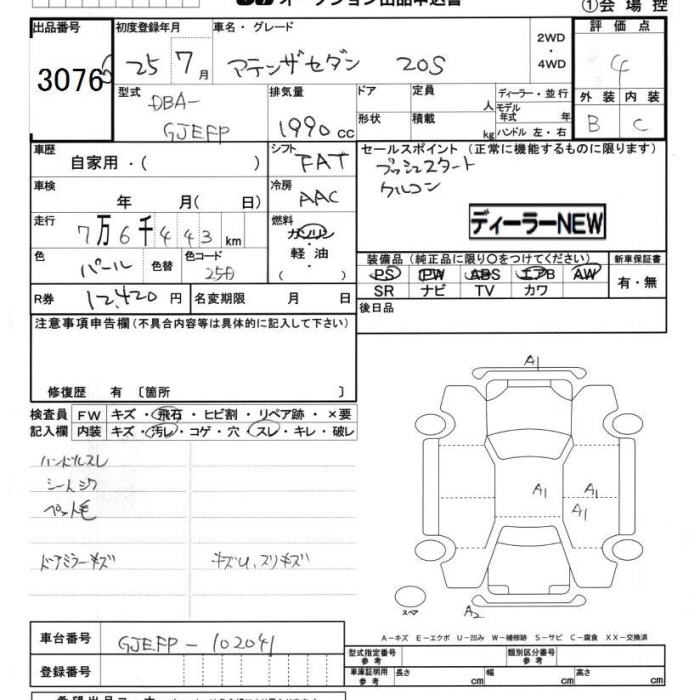 オークション出品申込書
①会場控
出品番号 初度登録年月 車名・グレード 2WD・4WD 評価点
3076 25 7月 アテンザセダン 20S 4
型式 DBA-GJEFP 排気量 1990cc ドア 定員 人 ディーラー・並行 外装 内装
形状 積載 kg モデル年式 年 ハンドル 左・右 B C
車歴 自家用・( ) シフト FAT セールスポイント (正常に機能するものに限ります)
プッシュスタート
クルコン
車検 年 月( 日) 冷房 AAC
ディーラーNEW
走行 7万6千443km 燃料 ガソリン 軽油 ( )
色 パール 色替 色コード 25D
装備品(純正品に限り○をつけてください) 新車保証書
PS PW ABS エアB AW 有・無
SR ナビ TV カワ
R券 12,420円 名変期限 月 日 後日品
注意事項申告欄(不具合内容等は具体的に記入して下さい)
修復歴 有〔箇所 〕
検査員 FW キズ・飛石・ヒビ割・リペア跡・×要
記入欄 内装 キズ・汚レ・コゲ・穴・スレ・キレ・破レ
ハンドルスレ
シートシワ
ペット毛
ドアミラーキズ キズU、スリキズ
A1
A1 A1
A1
スペア A2
A-キズ E-エクボ U-凹み W-補修跡 S-サビ C-腐食 XX-交換済
車台番号 GJEFP-102041 型式指定番号 参考 類別区分番号 参考
登録番号 車庫証明用 参考 長さ cm 幅 cm 高さ cm